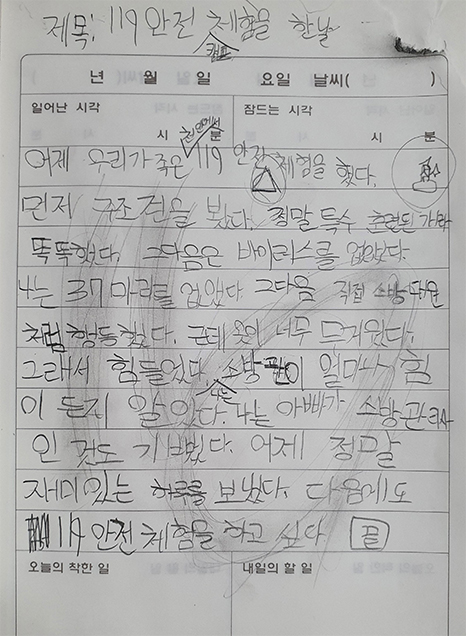 제목: 119 안전 캠프 체험을 한날
년 월 일 요일 날씨( )
일어난 시각 잠드는 시각
시 분 시 분
어제 우리가족은 천안에서 119 안전 체험을 했다.
먼저 구조견을 봤다. 정말 특수 훈련된 개라
똑똑했다. 그다음은 바이러스를 없앴다.
나는 37마리를 없앴다. 그다음 직접 소방대원
처럼 행동했다. 근데 옷이 너무 뜨거웠다.
그래서 힘들었다. 소방관이 얼마나 힘
이 든지 알았다. 나는 아빠가 소방관
인 것도 기뻤다. 어제 정말
재미있는 하루를 보냈다. 다음에도
119 안전 체험을 하고 싶다 끝
오늘의 착한 일 내일의 할 일